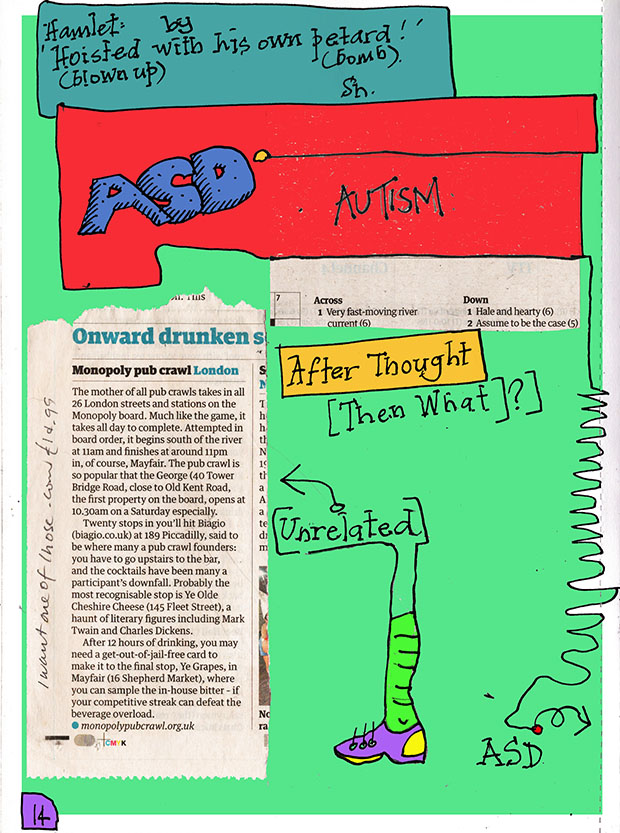 Hamlet: by
'Hoisted with his own petard!'
(blown up) (bomb).
Sh.
ASD
AUTISM
7
Across
1 Very fast-moving river
current (6)
Down
1 Hale and hearty (6)
2 Assume to be the case (5)
After Thought
[Then What]?]
Onward drunken s
Monopoly pub crawl London
The mother of all pub crawls takes in all
26 London streets and stations on the
Monopoly board. Much like the game, it
takes all day to complete. Attempted in
board order, it begins south of the river
at 11am and finishes at around 11pm
in, of course, Mayfair. The pub crawl is
so popular that the George (40 Tower
Bridge Road, close to Old Kent Road,
the first property on the board, opens at
10.30am on a Saturday especially.
Twenty stops in you'll hit Biagio
(biagio.co.uk) at 189 Piccadilly, said to
be where many a pub crawl founders:
you have to go upstairs to the bar,
and the cocktails have been many a
participant's downfall. Probably the
most recognisable stop is Ye Olde
Cheshire Cheese (145 Fleet Street), a
haunt of literary figures including Mark
Twain and Charles Dickens.
After 12 hours of drinking, you may
need a get-out-of-jail-free card to
make it to the final stop, Ye Grapes, in
Mayfair (16 Shepherd Market), where
you can sample the in-house bitter – if
your competitive streak can defeat the
beverage overload.
monopolypubcrawl.org.uk
CMYK
I want one of those.com £14.99
[Unrelated]
ASD
14